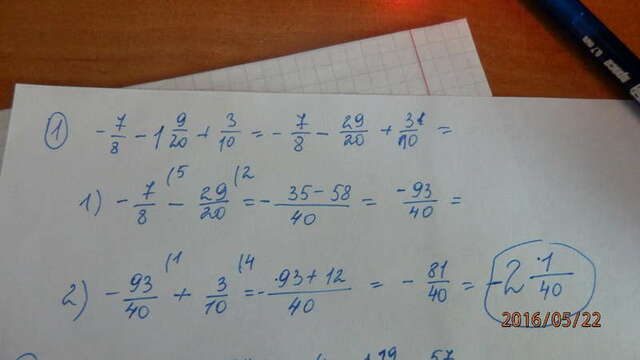 ① -7/8 - 1 9/20 + 3/10 = -7/8 - 29/20 + 3/10 =
1) -7/8 (5 - 29/20 (2 = - 35-58/40 = -93/40 =
2) -93/40 (1 + 3/10 (4 = - 93+12/40 = - 81/40 = -2 1/40
2016/05/22